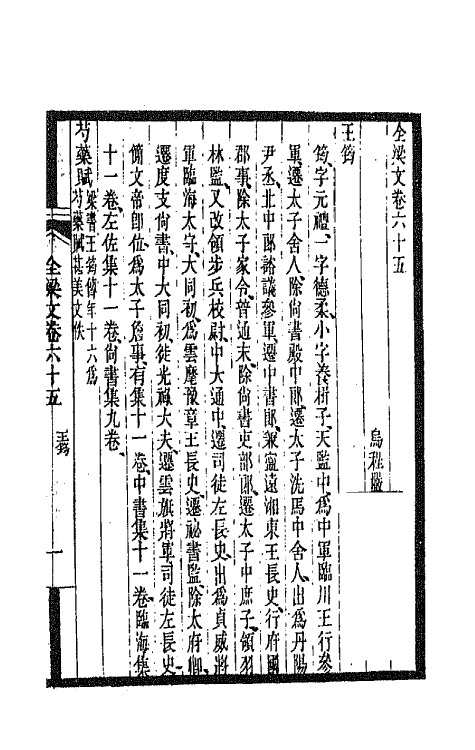 全梁文卷六十五
烏程嚴
王筠
筠字元禮、一字德柔、小字養、天監中、爲中軍臨川王行參
軍、遷太子舍人、除尚書殿中郎、遷太子洗馬中舍人、出爲丹陽
尹丞、北中郎諮議參軍、遷中書郎、兼寧遠湘東王長史、行府國
郡事、除太子家令、普通末、除尚書吏部郎、遷太子中庶子、領羽
林監、又改領步兵校尉、中大通中、遷司徒左長史、出爲貞威將
軍臨海太守、大同初、爲雲麾豫章王長史、遷祕書監、除太府卿、
遷度支尚書、中大同初、徙光祿大夫、遷雲旗將軍司徒左長史、
簡文帝卽位、爲太子詹事、有集十一卷、中書集十一卷、臨海集
十一卷、左佐集十一卷、尚書集九卷、
芍藥賦 梁書王筠傳年十六爲
芍藥賦甚美文佚
全梁文卷六十五 王筠 一